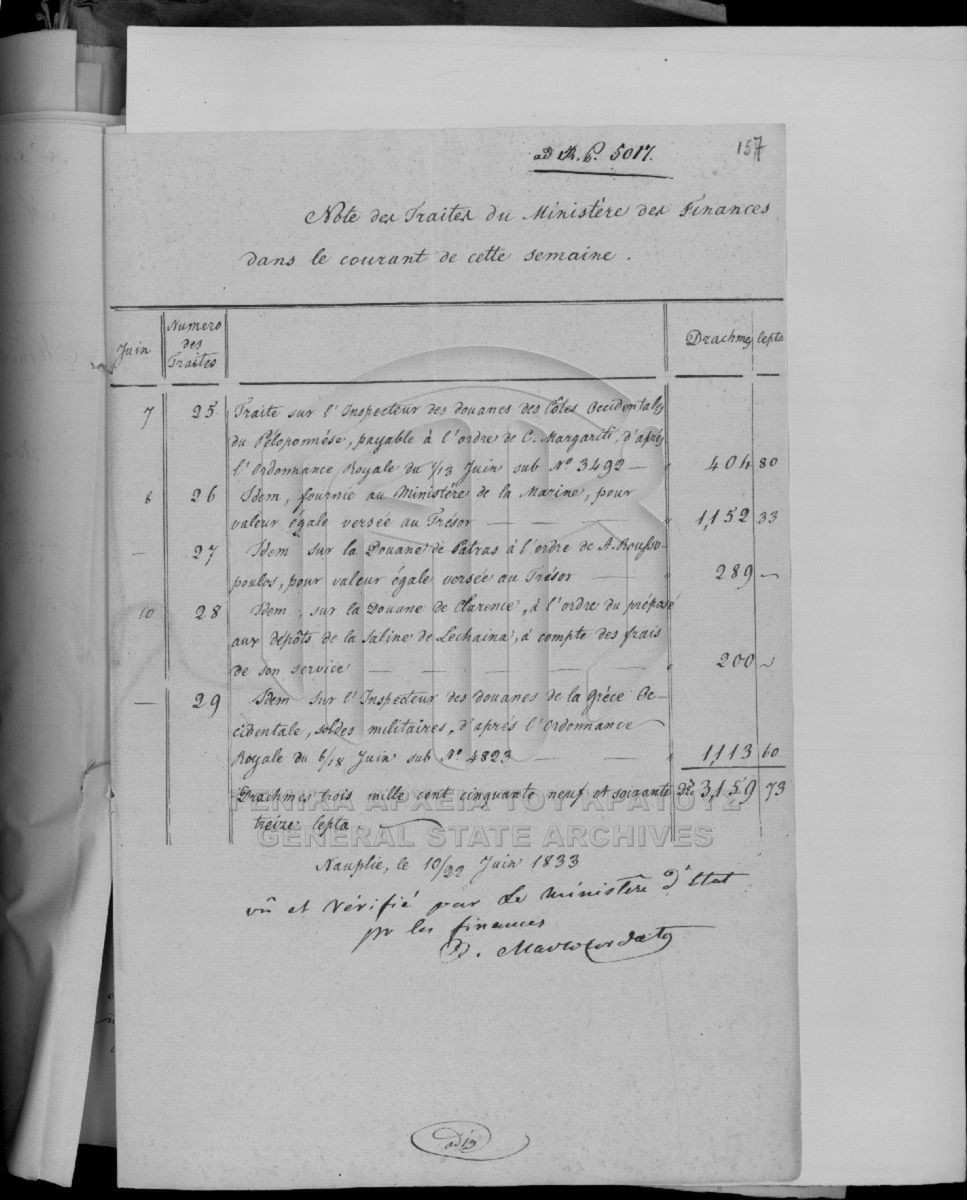 ad R. P. 5017.
157
Note des Traites du Ministère des Finances
dans le courant de cette semaine.
Juin
Numero
des
Traites
Drachmes lepta
7 25 Traite sur l'Inspecteur des douanes des Côtes Occidentales
du Péloponnése, payable à l'ordre de C. Margariti, d'aprés
l'Ordonnance Royale du 1/13 Juin sub No 3492 — " 404 80
8 26 Idem, fournie au Ministère de la Marine, pour
valeur égale versée au Trésor — — — " 1,152 33
— 27 Idem sur la Douane de Patras à l'ordre de A. Rousso-
poulos, pour valeur égale versée au Trésor — " 289 —
10 28 Idem, sur la Douane de Clarence, à l'ordre du préposé
aux dépôts de la Saline de Lechaina, à compte des frais
de son service — — — — " 200 —
— 29 Idem sur l'Inspecteur des douanes de la Grèce Oc-
cidentale, soldes militaires, d'aprés l'Ordonnance
Royale du 6/18 Juin sub No 4823 — — " 1113 60
Drachmes trois mille cent cinquante neuf et soixante Dr. 3,159 73
treize lepta
ΓΕΝΙΚΑ ΑΡΧΕΙΑ ΤΟΥ ΚΡΑΤΟΥΣ
GENERAL STATE ARCHIVES
Nauplie, le 10/22 Juin 1833
vû et Vérifié par Le Ministère d'Etat
pr les finances
Mavrocordato